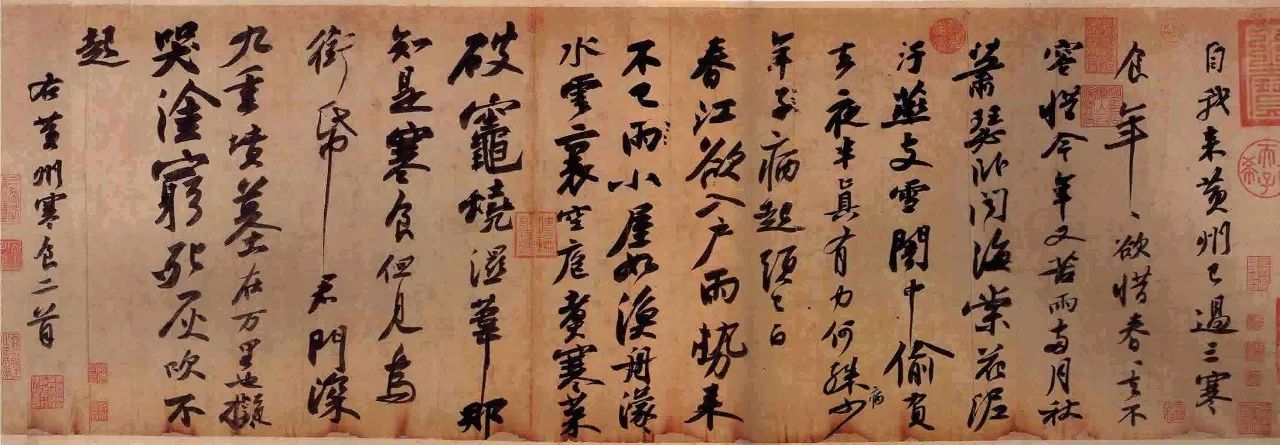 自我来黄州已過三寒
食年〻欲惜春〻去不
容惜今年又苦雨兩月秋
蕭瑟卧聞海棠花泥
汙燕支雪闇中偷負
去夜半真有力何殊少
病
年子病起頭已白
春江欲入户雨勢来
不已雨小屋如漁舟濛
水雲裏空庖煑寒菜
破竈燒濕葦那
知是寒食但見烏
銜帋君門深
九重墳墓在万里也擬
哭塗窮死灰吹不
起
右黄州寒食二首